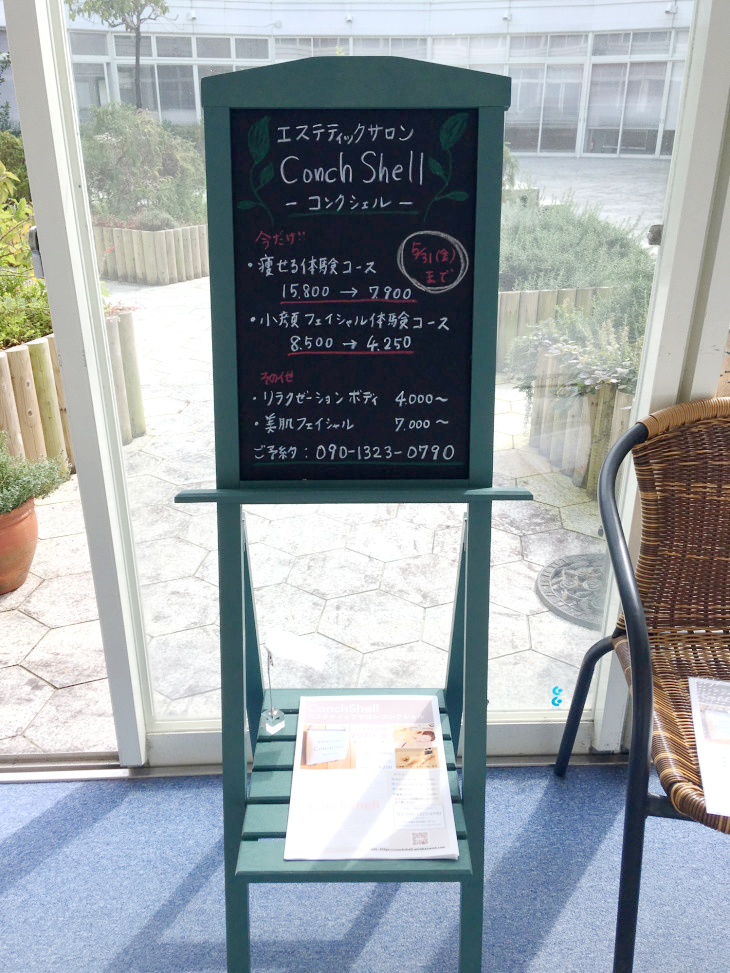 エステティックサロン
Conch Shell
- コンクシェル -
今だけ!!
5/31(金)
まで
・痩せる体験コース
15.800 → 7.900
・小顔フェイシャル体験コース
8.500 → 4.250
その他
・リラクゼーション ボディ 4.000～
・美肌フェイシャル 7.000～
ご予約：090-1323-0790
ConchShell